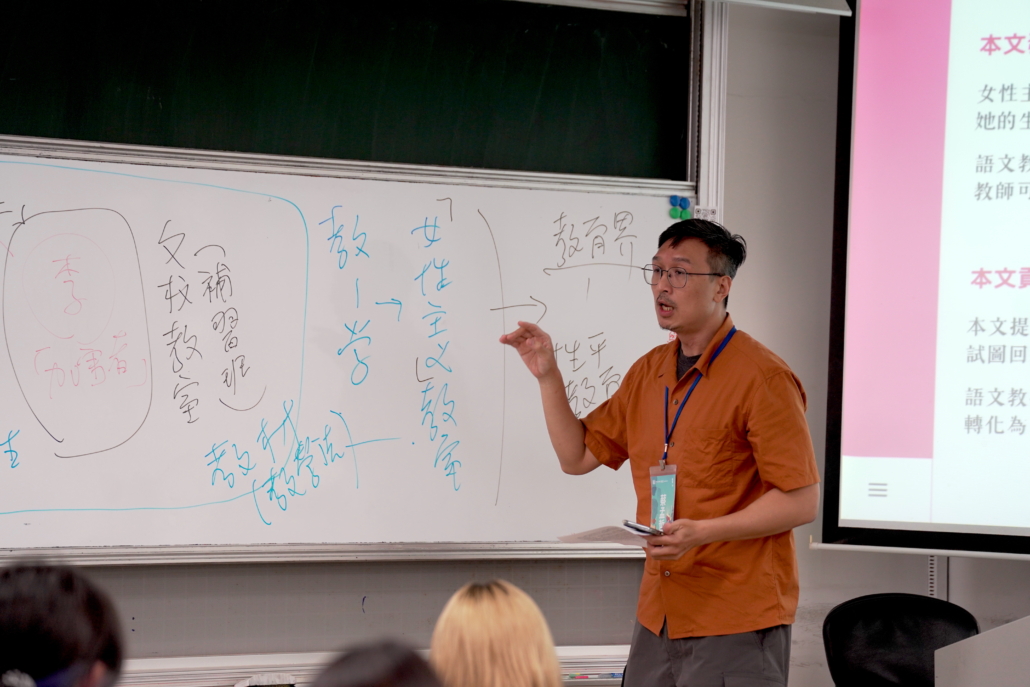 李
「加害者」
文校教室
(補習班)
教-学
女性主义
教室
教材
(教学法)
生
教育界
性平
教育
本文
女性主
她的生
語文教
教師可
本文貢
本文提
試圖回
語文教
轉化為